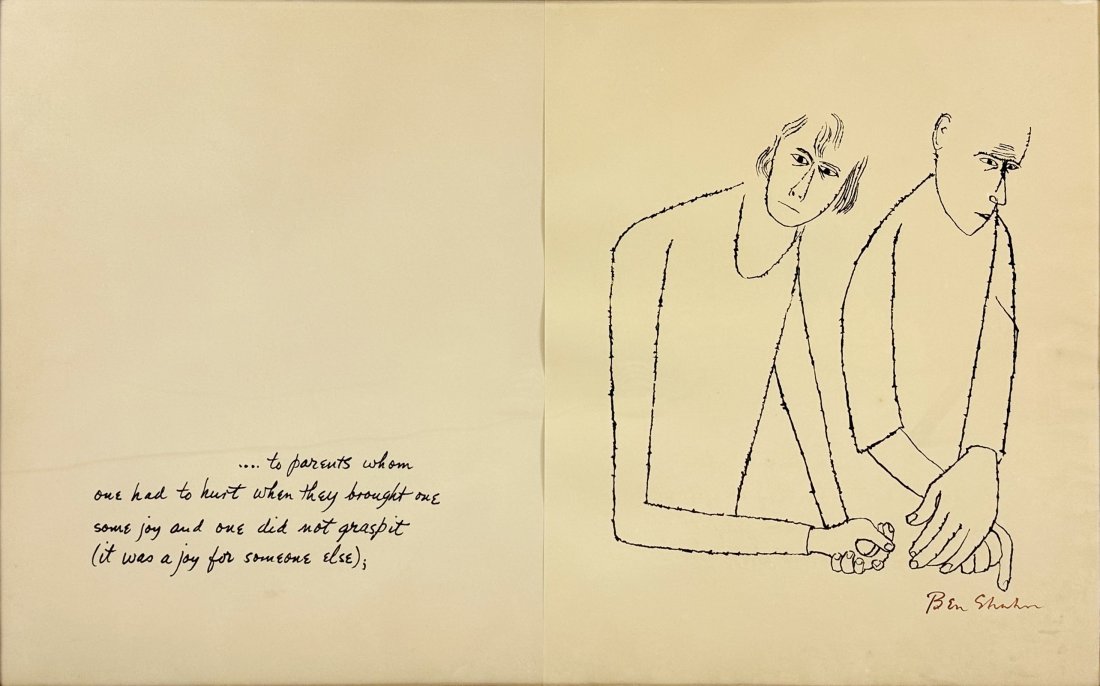 .... to parents whom
one had to hurt when they brought one
some joy and one did not grasp it
(it was a joy for someone else);
Ben Shahn